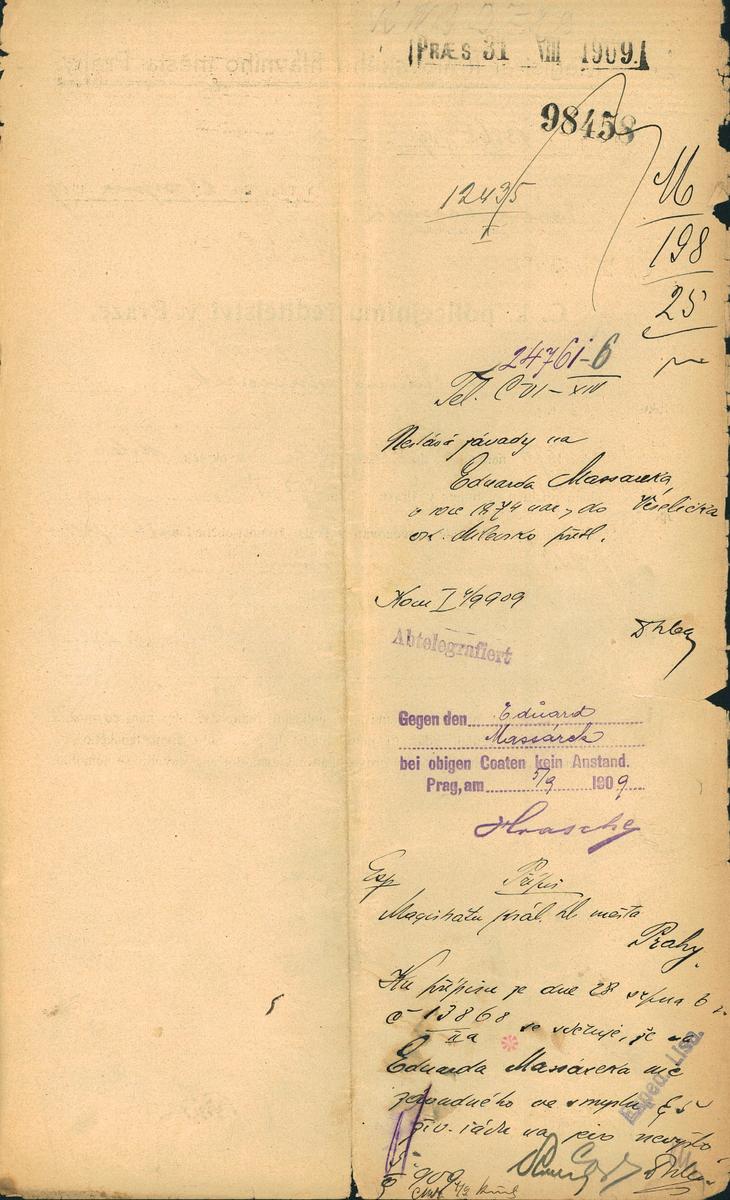 PRÆS 31 VIII 1909.
98458
12495
I
M
198
25
24761-6
Tel. Č VI – XIV
závady na
Eduarda Massareka
v roce 1874 nar., do Všelička
ok. Milevsko přísl.
Kom I 4/9 909
Abtelegrafiert
Gegen den Eduard
Massárek
bei obigen Coaten kein Anstand.
Prag, am 5/9 1909
Esp
Přípis
Magistrátu král. hl. města
Prahy.
Ku přípisu ze dne 28 srpna
č 13868
IIa se sděluje, že na
Eduarda Massáreka nic
závadného ve smyslu § 5
živ. řádu na jevo nevyšlo
Exped. Lisa.
909